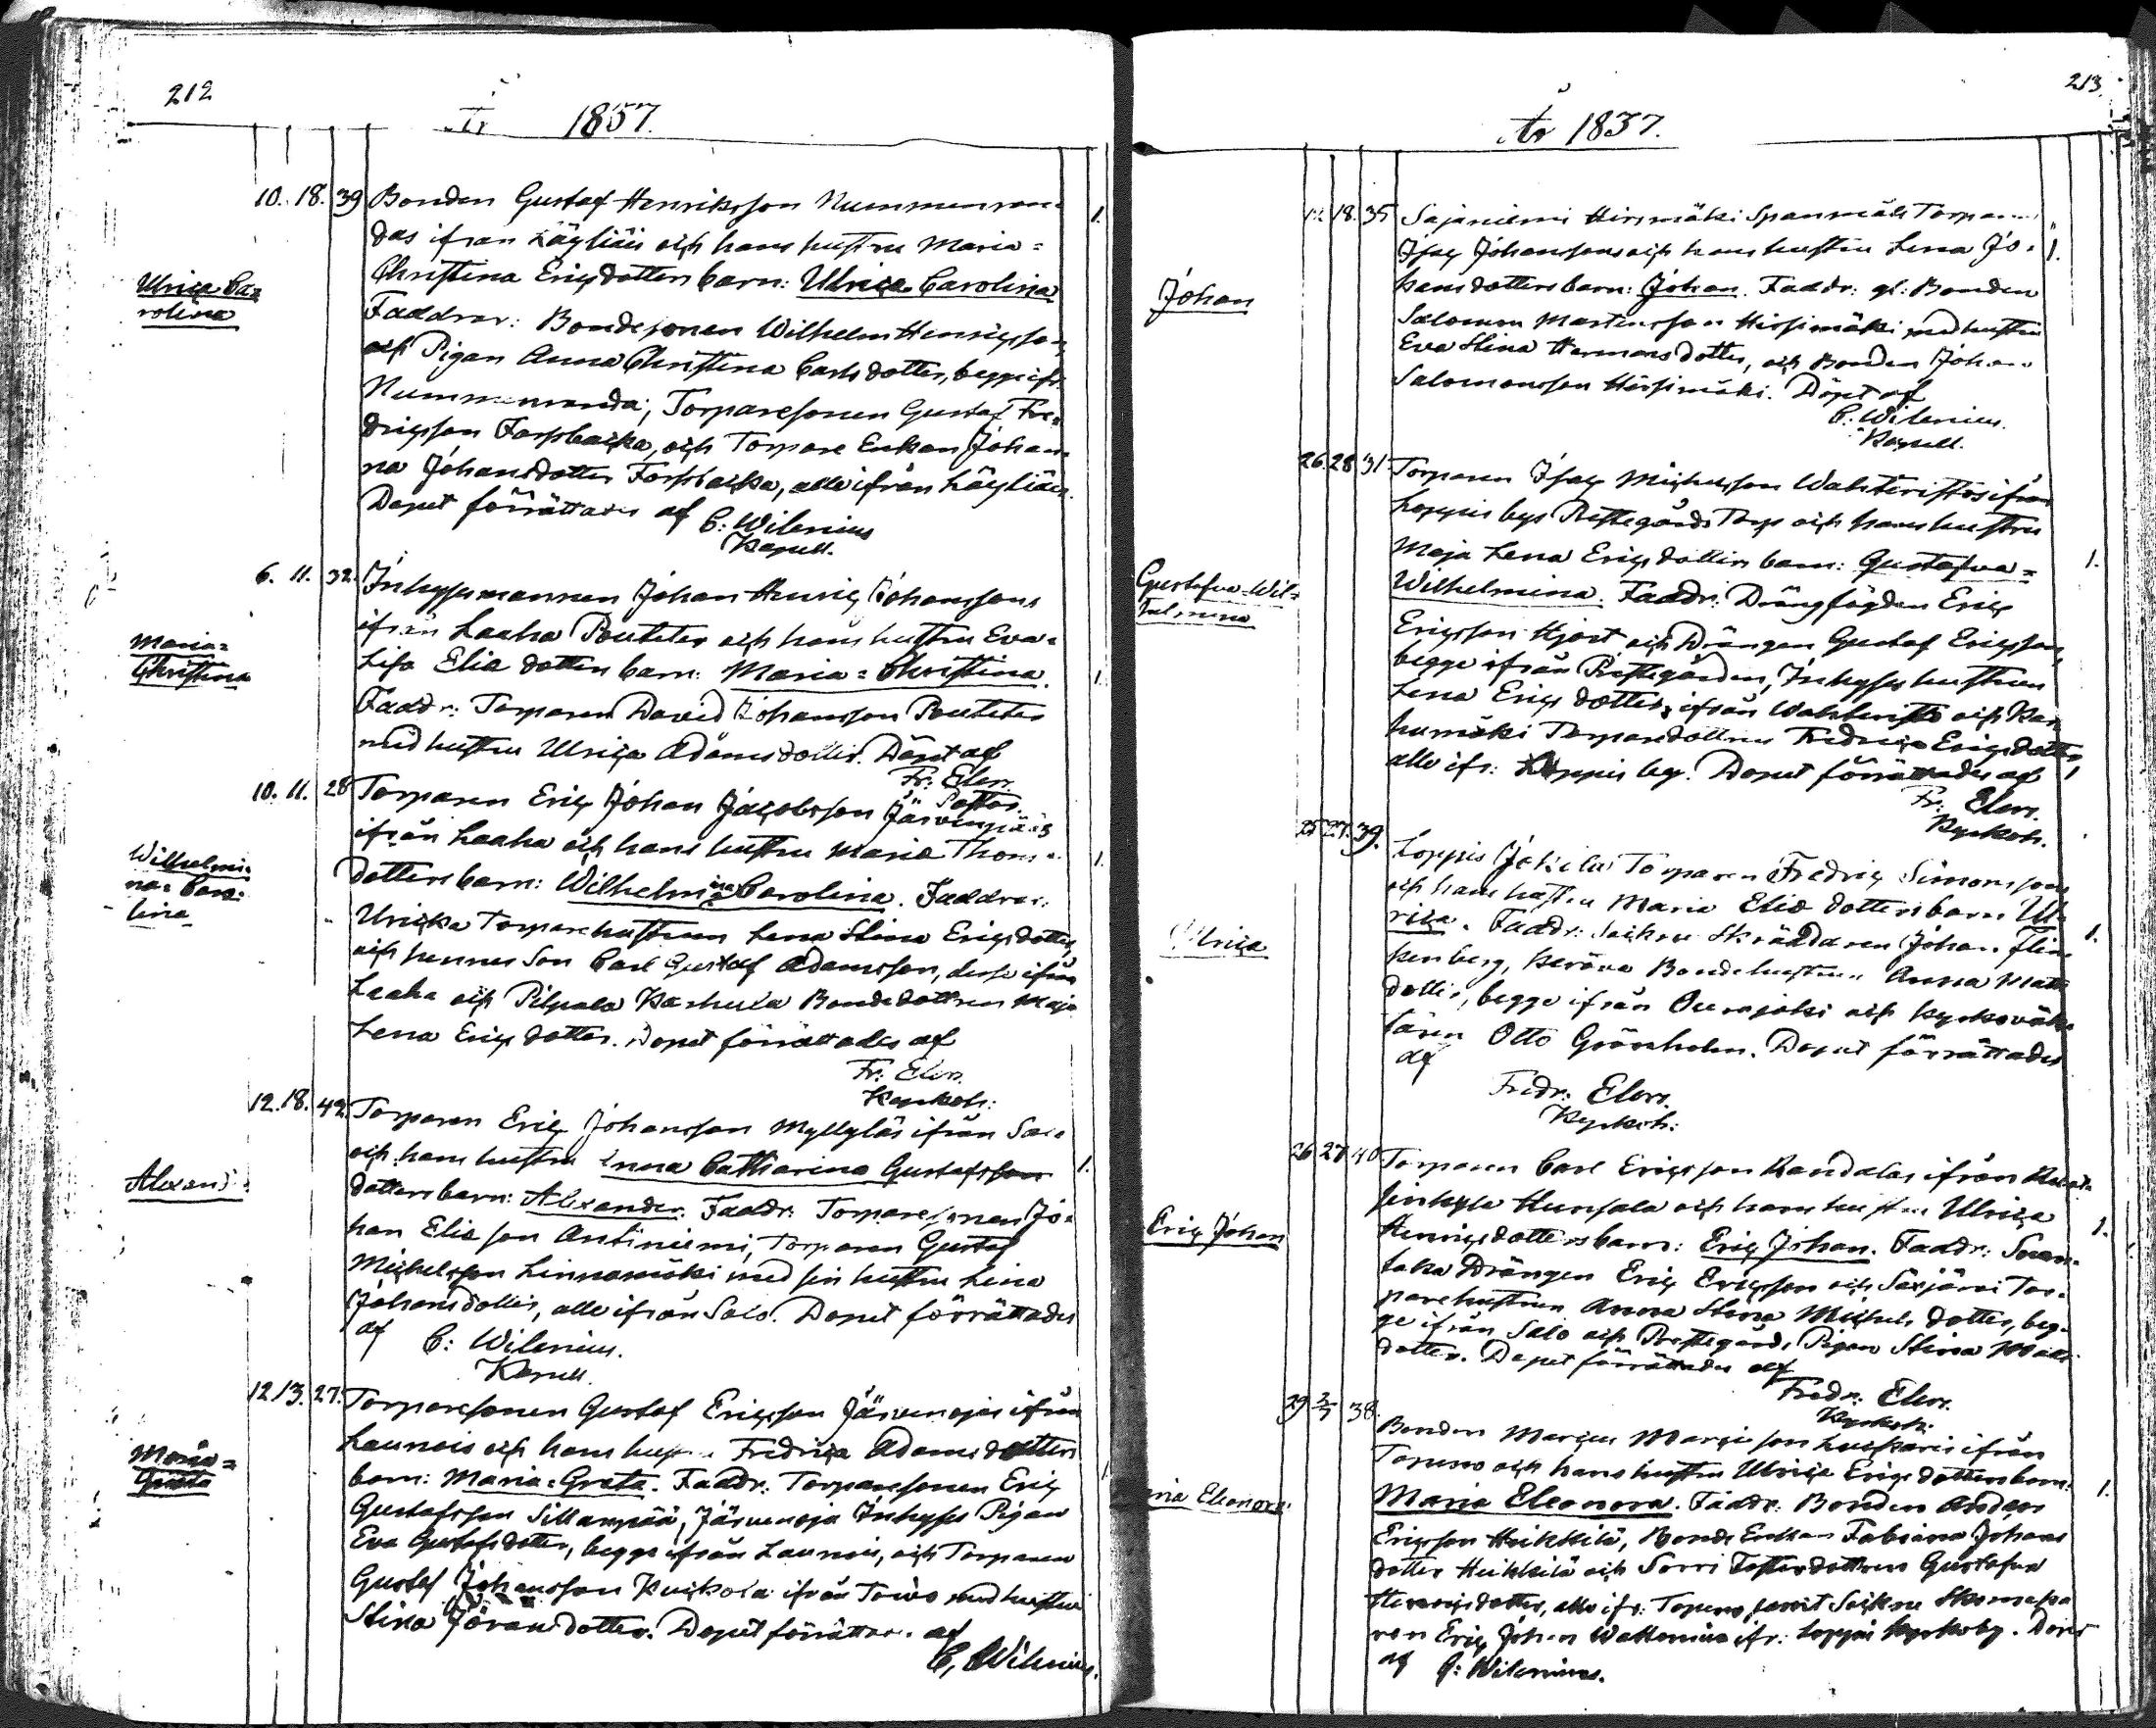 212
År 1837.
10. 18. 39 Bonden Gustaf Henriksson Nummenran-
das ifrån Läyliäis och hans hustru Maria=
Christina Ericsdotters barn: Ulrica Carolina
Ulrica Ca=
rolina
Faddrar: Bondesonen Wilhelm Henricsson
och Pigan Anna Christina Carlsdotter, begge ifr.
Nummenranda; Torparesonen Gustaf Fre=
dricsson Forsbacka, och Torpare Enkan Johan
na Johansdotter Forsbacka, alle ifrån Läyliäis.
Dopet förrättades af C: Wilenius
Kapell.
6. 11. 32. Inhysesmannen Johan Henric Johanssons
ifrån Laaha Pouteter och hans hustru Eva=
Lisa Eliæ dotters barn: Maria=Christina. 1.
Maria=
Christina
Faddr: Torparen David Johansson Pouteter
med hustru Ulrica Adamsdotter. Döpt af
Fr: Elers.
Pastor.
10. 11. 28 Torparen Eric Johan Jacobsson Järvenpääs
ifrån Laaha och hans hustru Maria Thoms= 1.
dotters barn: Wilhelmina Carolina. Faddrar:
Wilhelmi=
na=Caro=
lina
Uricka Torparehustrun Lena Stina Ericsdotter
och hennes Son Carl Gustaf Adamsson, desse ifrån
Laaha och Pilpala Karhula Bondedottren Maja
Lena Erics dotter. Dopet förrättades af
Fr: Elers.
Kyrkoh:
12. 18. 42. Torparen Eric Johansson Myllyläs ifrån Salo
och hans hustru Anna Catharina Gustafsson 1.
dotters barn: Alexander. Faddr: Torparesonen Jo=
Alexand
han Eliæson Antiniemi, Torparen Gustaf
Michelsson Linnamäki med sin hustru Lina
Johansdotter, alle ifrån Salo. Dopet förrättades
af C: Wilenius.
Kapell.
12 13. 27. Torparesonen Gustaf Ericsson Järvenojas ifrån
Launois och hans hustru Fredrica Adamsdotters
barn: Maria=Greta. Faddr: Torparesonen Eric
Maria=
Greta
Gustafsson Sillanpää, Järvenoja Inhyses Pigan
Eva Gustafsdotter, begge ifrån Launois, och Torparen
Gustaf Johansson Kuikola ifrån Towo med hustru
Stina Jöransdotter. Dopet förrättas af
C, Wilenius.
213.
År 1837.
12 18. 35 Sajaniemi Hirsimäki Spanmåls Torparen
Isac Johanssons och hans hustru Lena Jo= 1.
hansdotters barn: Johan. Faddr: gl: Bonden
Johan
Salomon Mårtensson Hirsimäki med hustru
Eva Stina Hermansdotter, och Bonden Johan
Salomonsson Hirsimäki. Döpt af
C: Wilenius.
Kapell.
26. 28. 31 Torparen Isac Michelsson Wahteristös ifrån
Loppis bys Prestegårds Torp och hans hustru
Maja Lena Ericsdotters barn: Gustafva= 1.
Wilhelmina. Faddr: Drängfogden Eric
Gustafva=Wil=
helmina
Ericsson Hjort och Drängen Gustaf Ericsson,
begge ifrån Prestegården, Inhyses hustrun
Lena Erics dotter, ifrån Wahteristö och Kar
humäki Torparedottren Fredrica Ericsdotter
alle ifr: Loppis by. Dopet förrättades af
Fr: Elers.
Kyrkoh.
25 27. 39. Loppis Jokila Torparen Fredric Simonssons
och hans hustru Maria Eliæ dotters barn: Ul=
rica. Faddr: Socknee Skräddaren Johan Flin 1.
Ulrica
kenberg, Keräva Bondehustrun Anna Matts
dotter, begge ifrån Ourajoki och Kyrkoväk
taren Otto Grönholm. Dopet förrättades
af
Fredr: Elers.
Kyrkoh:
26 27 40. Torparen Carl Ericsson Randalas ifrån
Hunsala och hans hustru Ulrica
Henricsdotters barn: Eric Johan. Faddr: 1.
Eric Johan
Drängen Eric Ericsson och Särjärvi Tor=
parehustrun Anna Stina Michels dotter, beg=
ge ifrån Salo och Prestegårds Pigan Stina Matts
dotter. Dopet förrättades af
Fredr: Elers.
Kyrkoh:
29 2/7 38. Bonden Marcus Marcusson ifrån
Topeno och hans hustru Ulrica Ericsdotters barn:
Maria Eleonora. Faddr: Bonden Anders 1.
ria Eleonora
Ericsson Heikkilä, Bonde Enkan Fabiana Johans
dotter Heikkilä och Sorri Fosterdottren Gustafva
Henricsdotter, alle ifr: Topeno, samt Sockne Skomaka
ren Eric Johan ifr: Loppis Kyrkoby. Döpt
af C: Wilenius.